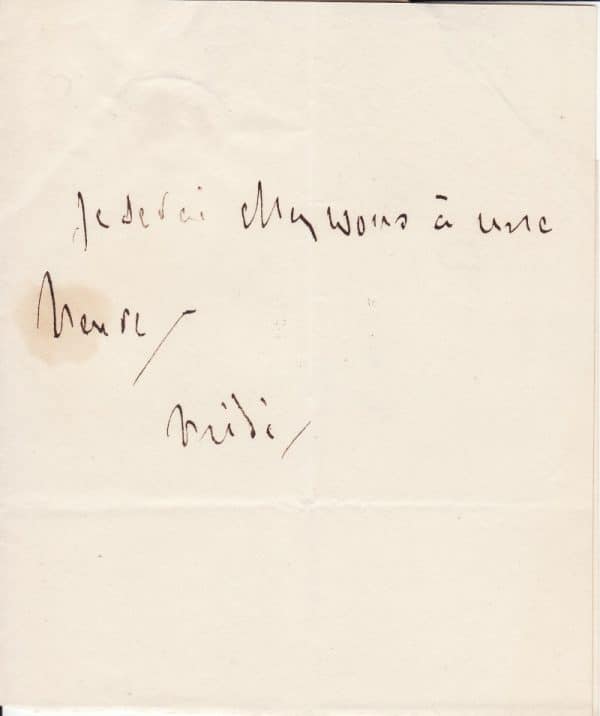 Je serai chez vous à une
heure
Midi